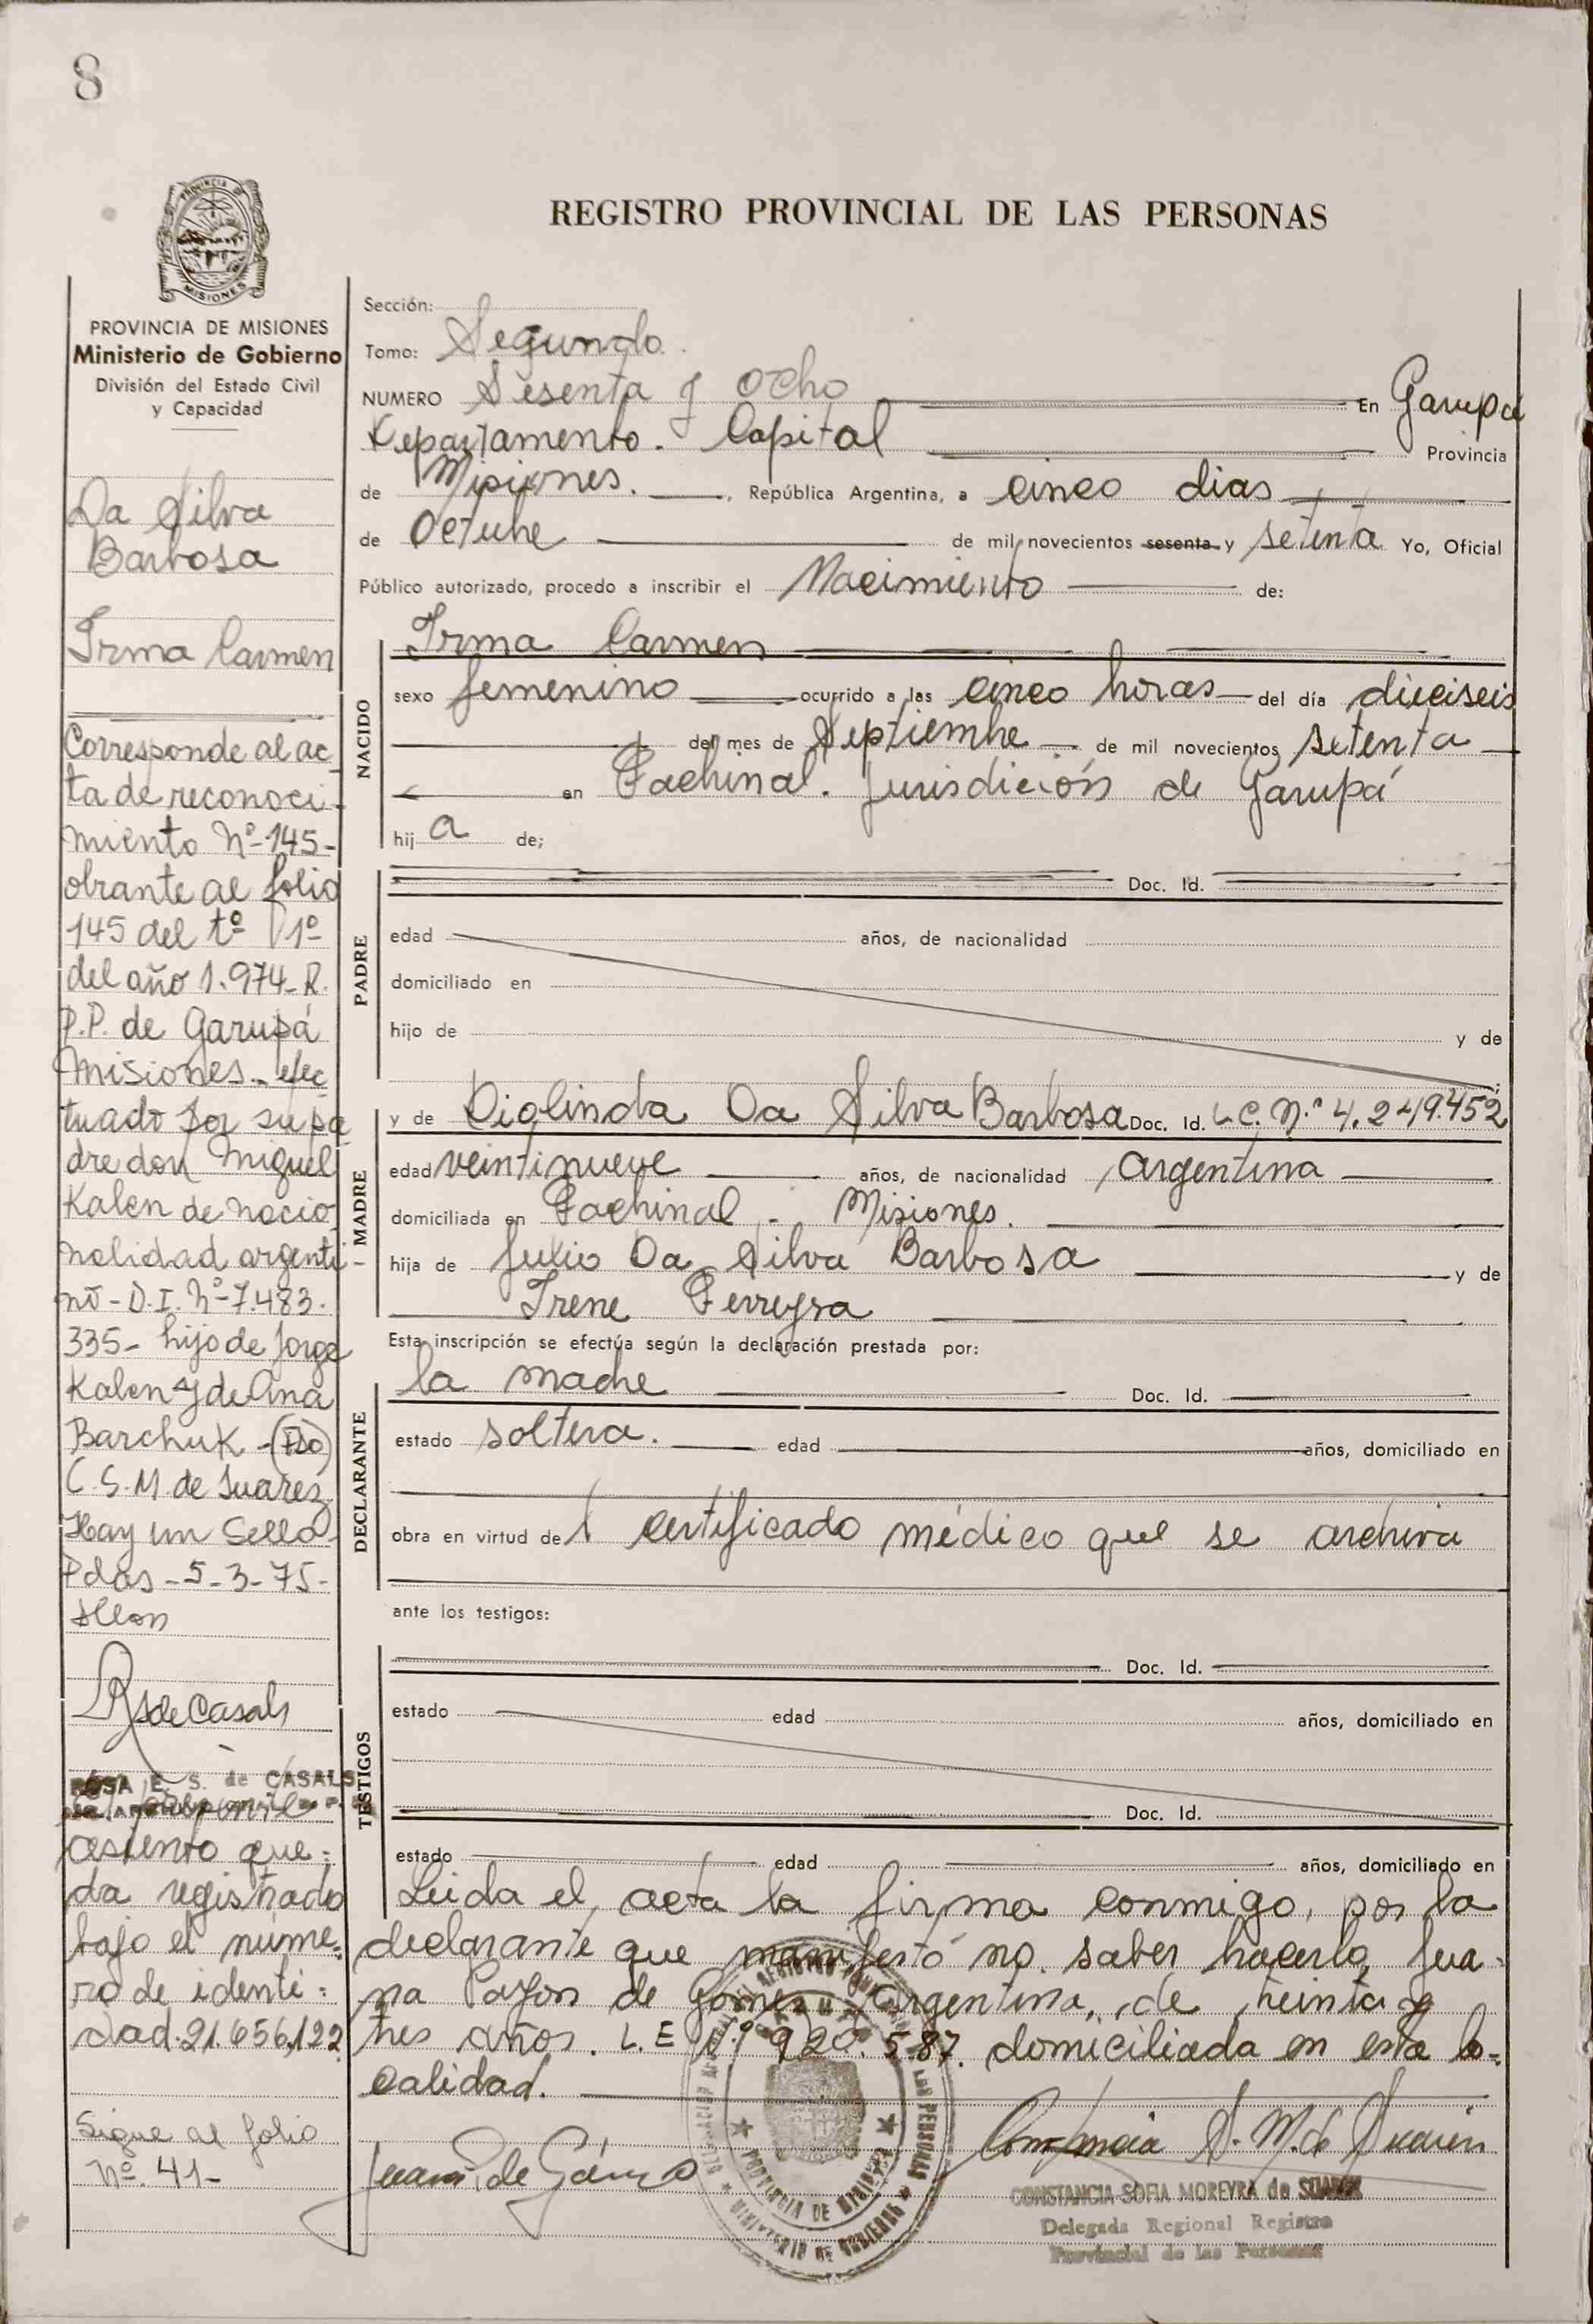 8
REGISTRO PROVINCIAL DE LAS PERSONAS
PROVINCIA DE MISIONES
Ministerio de Gobierno
División del Estado Civil
y Capacidad
Da Silva
Barbosa
Irma Carmen
Corresponde al ac-
ta de reconoci-
miento Nº-145-
obrante al folio
145 del tº 1º
del año 1.974- R.
P.P. de Garupá
Misiones.- efec
tuado por su pa
dre don Miguel
Kalen de nacio
nalidad argenti-
no - D.I. Nº-7.483.
335- hijo de Jorge
Kalen y de Ana
Barchuk - (Fdo)
C.S.M. de Suarez
Hay un Sello
Pdas - 5-3-75-
RS de Casals
ROSA E. S. de CASALS
asiento que-
da registrado
bajo el núme-
ro de identi-
dad. 21.656,122
Sigue al folio
Nº. 41-
Sección:
Tomo: Segundo
NUMERO Sesenta y ocho En Garupá
Departamento. Capital Provincia
de Misiones. , República Argentina, a cinco dias
de Octubre de mil novecientos sesenta y setenta Yo, Oficial
Público autorizado, procedo a inscribir el Nacimiento de:
NACIDO
Irma Carmen
sexo femenino ocurrido a las cinco horas del día dieciseis
del mes de Septiembre de mil novecientos setenta
en Fachinal. Jurisdicción de Garupá
hij a de;
PADRE
Doc. Id.
edad años, de nacionalidad
domiciliado en
hijo de y de
MADRE
y de Diolinda Da Silva Barbosa Doc. Id. L.C. N.º 4.249.452
edad veintinueve años, de nacionalidad Argentina
domiciliada en Fachinal - Misiones.
hija de Julio Da Silva Barbosa y de
Irene Ferreyra
Esta inscripción se efectúa según la declaración prestada por:
DECLARANTE
la madre Doc. Id.
estado soltera. edad años, domiciliado en
obra en virtud de l certificado médico que se archiva
ante los testigos:
TESTIGOS
Doc. Id.
estado edad años, domiciliado en
Doc. Id.
estado edad años, domiciliado en
Leida el acta la firma conmigo, por la
declarante que manifestó no saber hacerlo, Jua-
na Payon de Gomez Argentina, de treinta y
tres años. L.E Nº 920.587. domiciliada en esta lo-
calidad.
Juana P. de Gómez
Constancia S. M. de Suarez
CONSTANCIA SOFIA MOREYRA de SUAREZ
Delegada Regional Registro
Provincial de las Personas
PROVINCIA DE MISIONES
MINISTERIO DE GOBIERNO